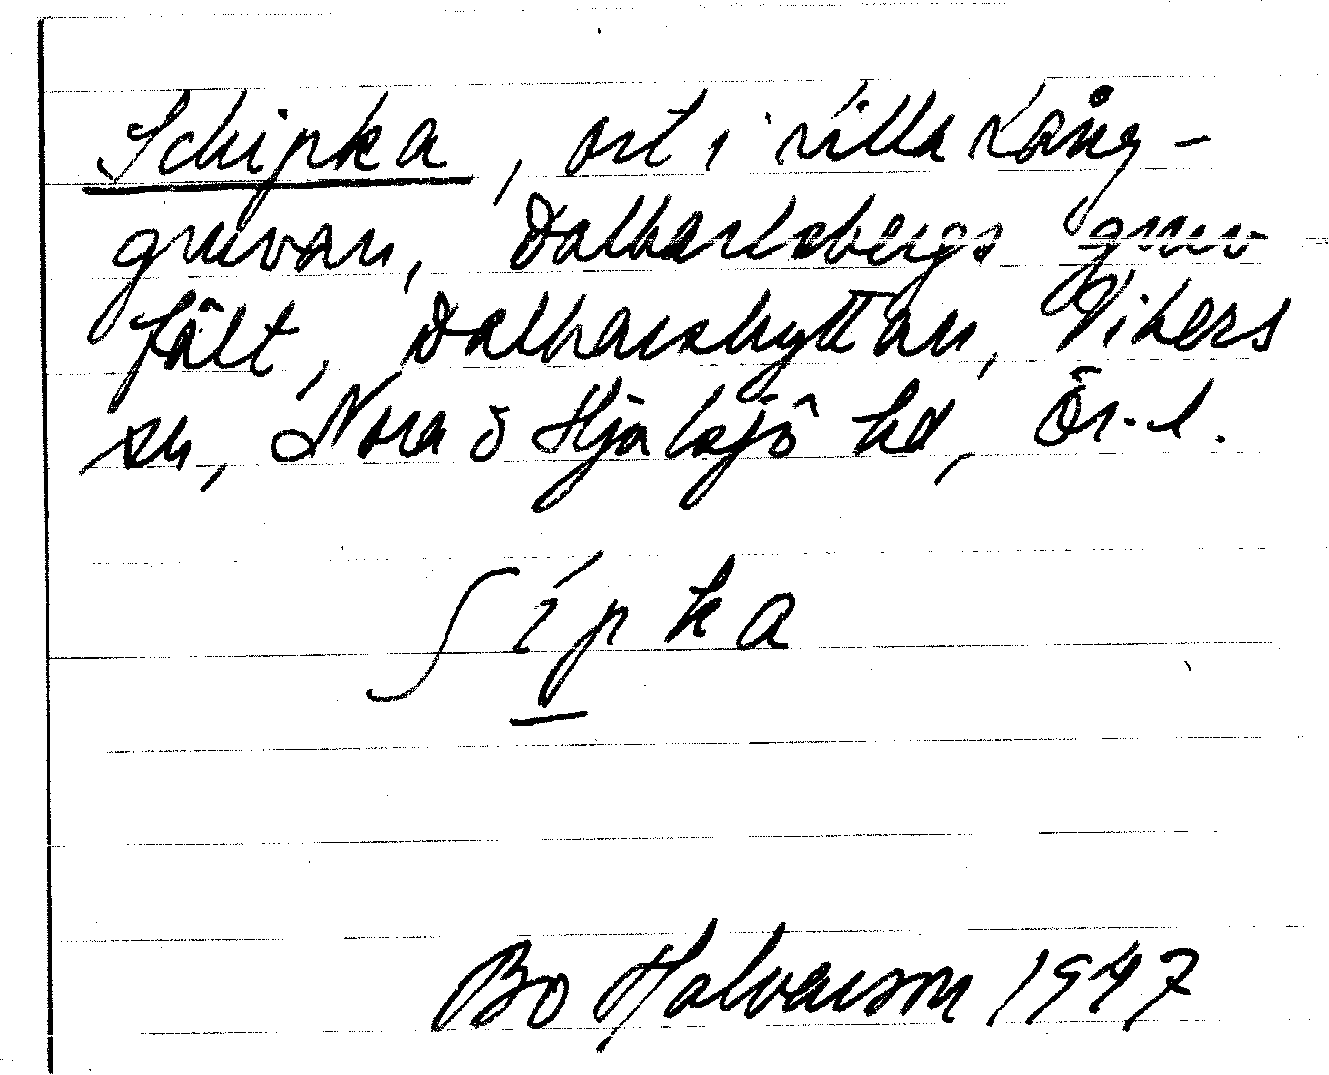 Schipka, ort i lilla Lång-
gruvan, Dalkarlsbergs gruv
fält, Dalkarshyttan, Vikers
sn, Nora o Hjulsjö hd, Ör. l.
ʃípka
Bo Halvarson 1947